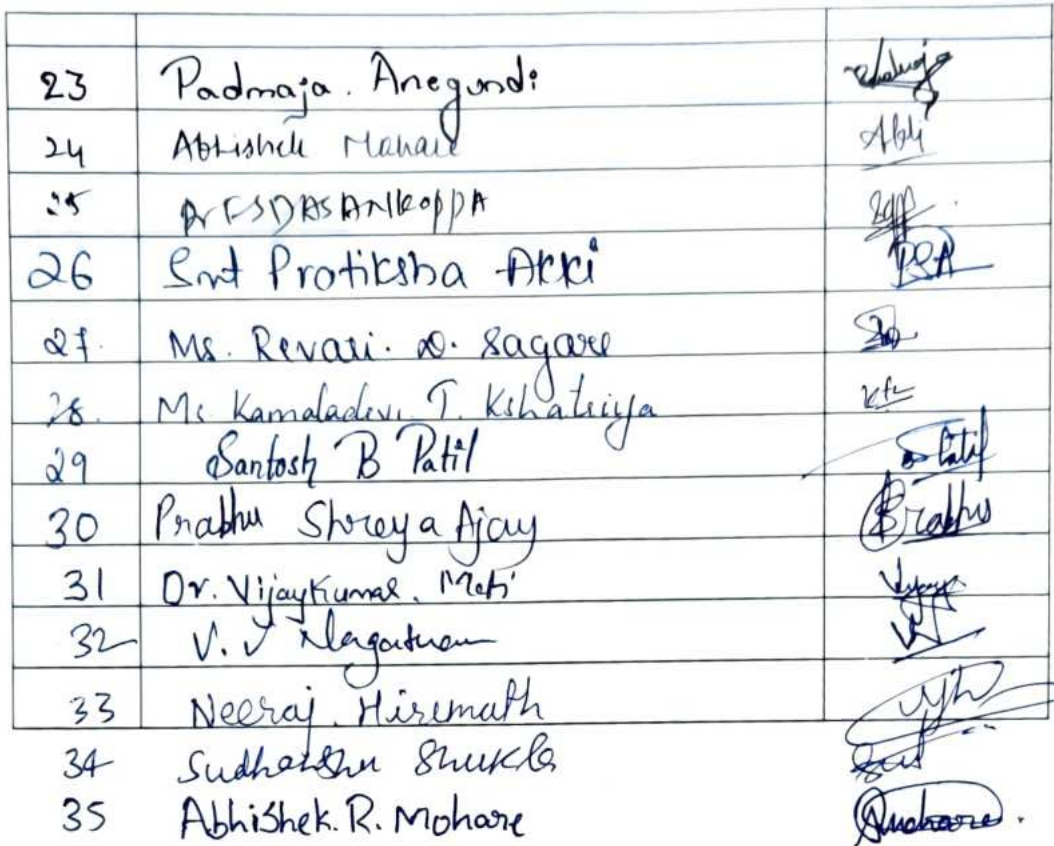 23 Padmaja. Anegundi
24 Abhishek Abhi
25
26 Smt Pratiksha Akki PSA
27. Ms. Revati. D. Sagare
28. Ms Kamaladevi T. Kshatriya
29 Santosh B Patil Patil
30 Prabhu Shreya Ajay Prabhu
31 Dr. Vijaykumar. Mati
32 V. J
33 Neeraj. Hiremath
34 Sudhanshu Shukla
35 Abhishek. R. Mohare